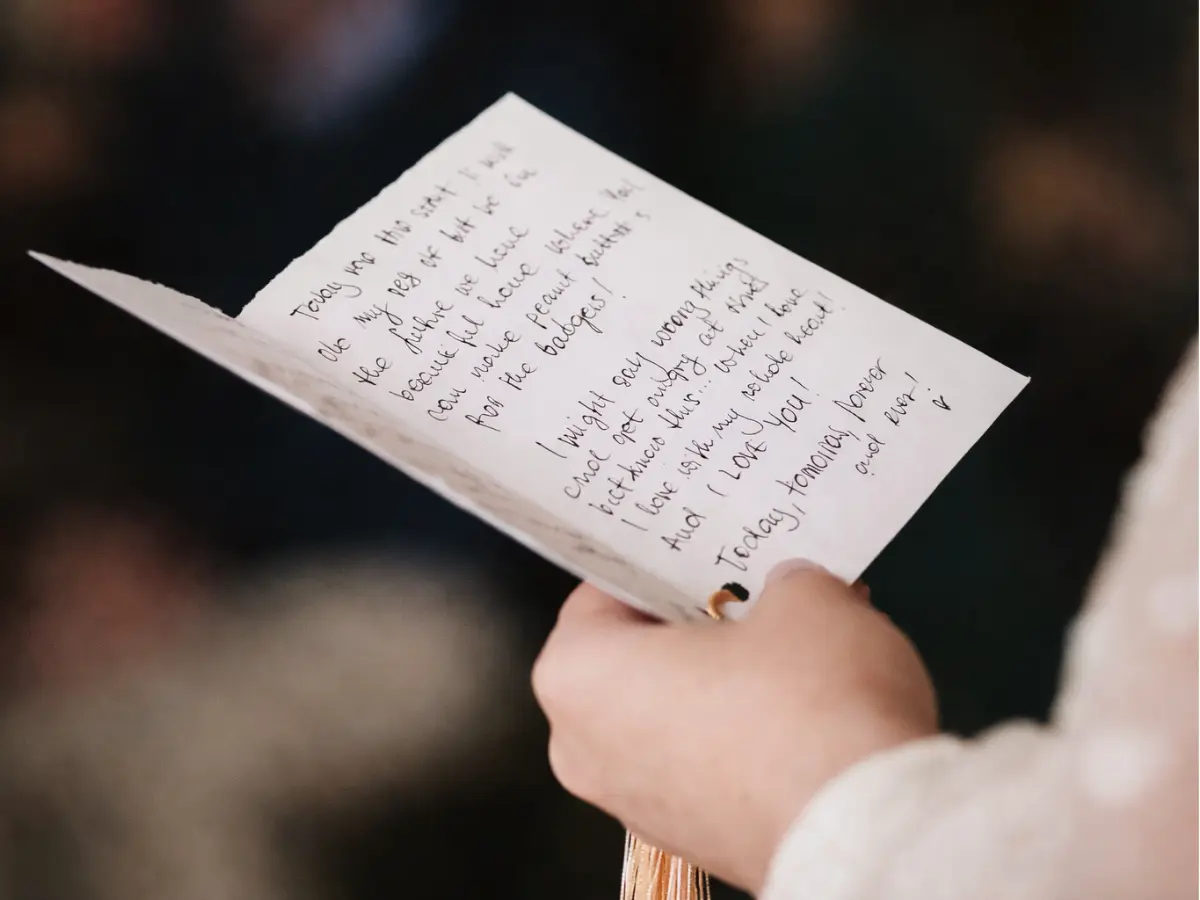 Today
do my of but be in
the future we have
beautiful home where you
can make peanut butter's
for the badgers!
I might say wrong things
and get angry at times
but know this... when I love
I love with my whole heart!
And I LOVE YOU!
Today, tomorrow, forever
and ever!